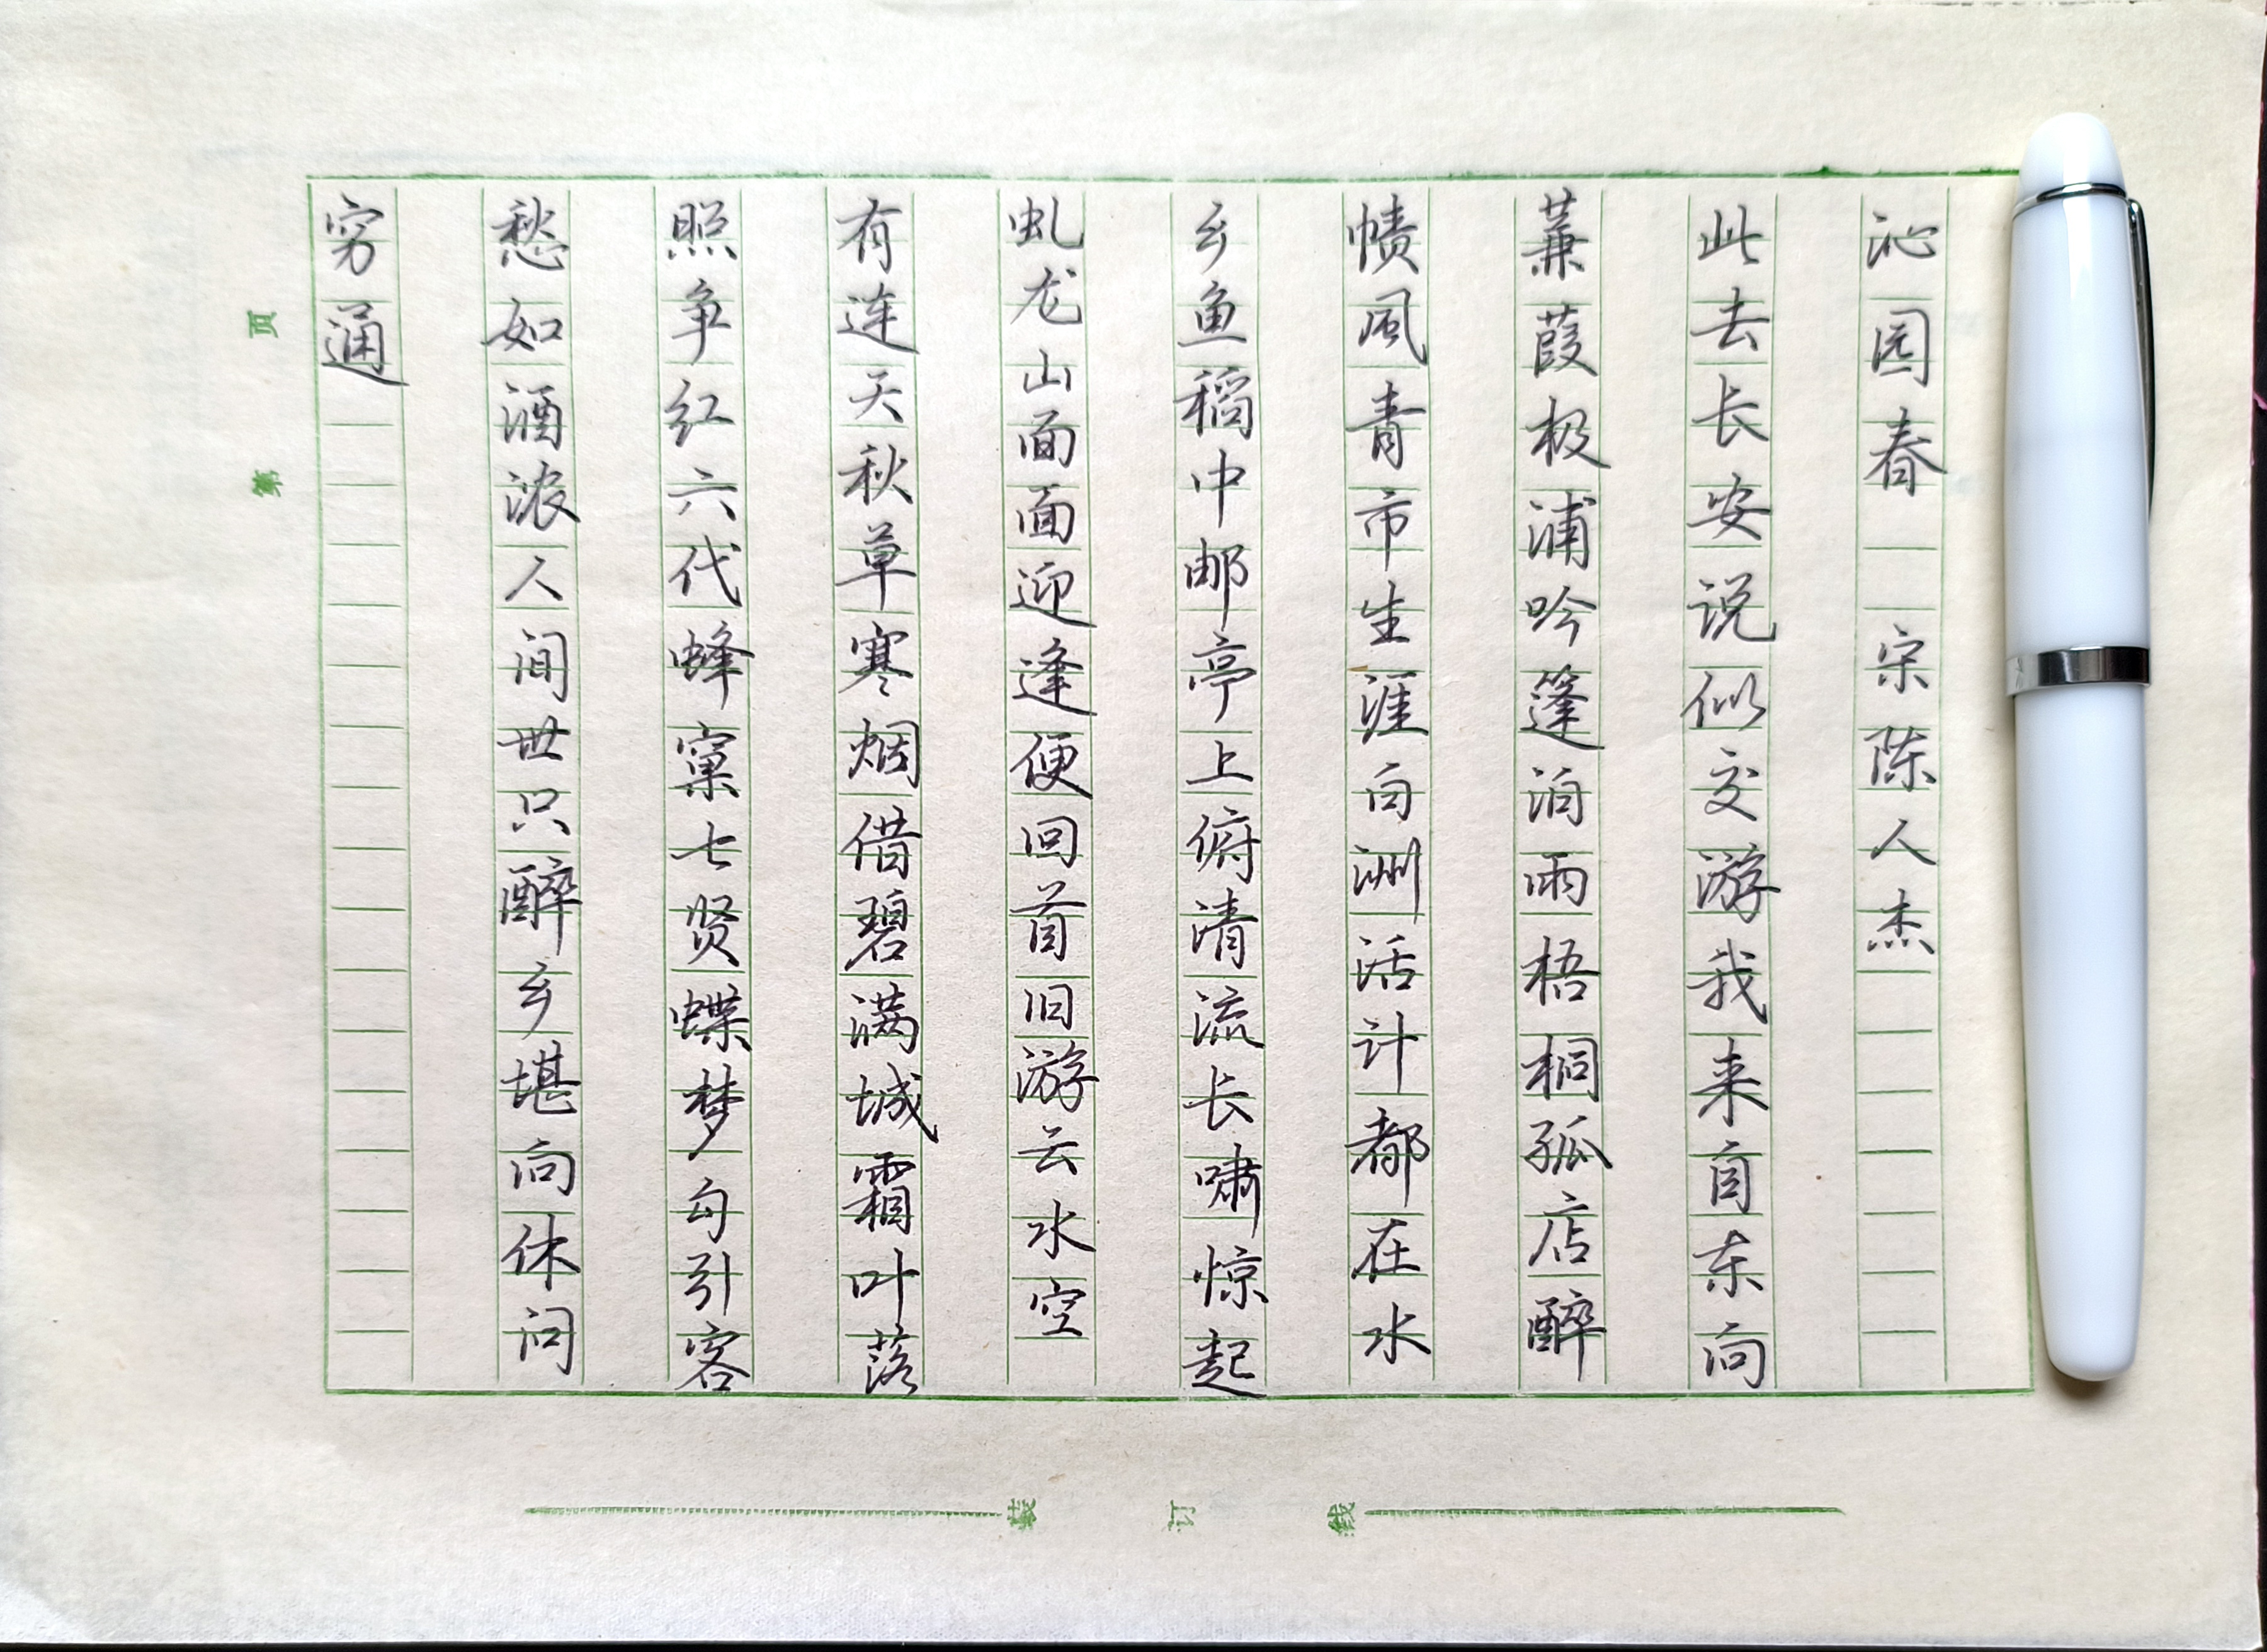 沁园春 宋 陈人杰
此去长安说似交游我来自东向
蒹葭极浦吟篷泊雨梧桐孤店醉
帻风青市生涯白洲活计都在水
乡鱼稻中邮亭上俯清流长啸惊起
虬龙山面面迎逢便回首旧游云水空
有连天秋草寒烟借碧满城霜叶落
照争红六代蜂窠七贤蝶梦勾引客
愁如酒浓人间世只醉乡堪向休问
穷通
第 页
装 订 线